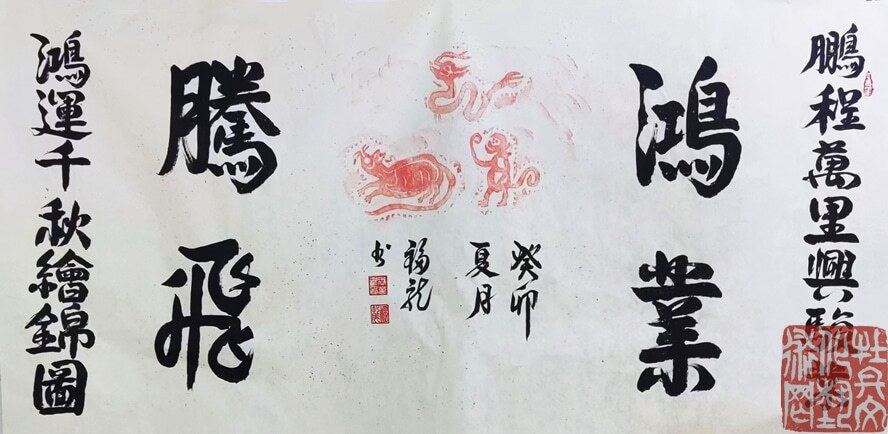 鵬程萬里興駿業
鴻業
癸卯
夏月
福龍
书
騰飛
鴻運千秋繪錦圖